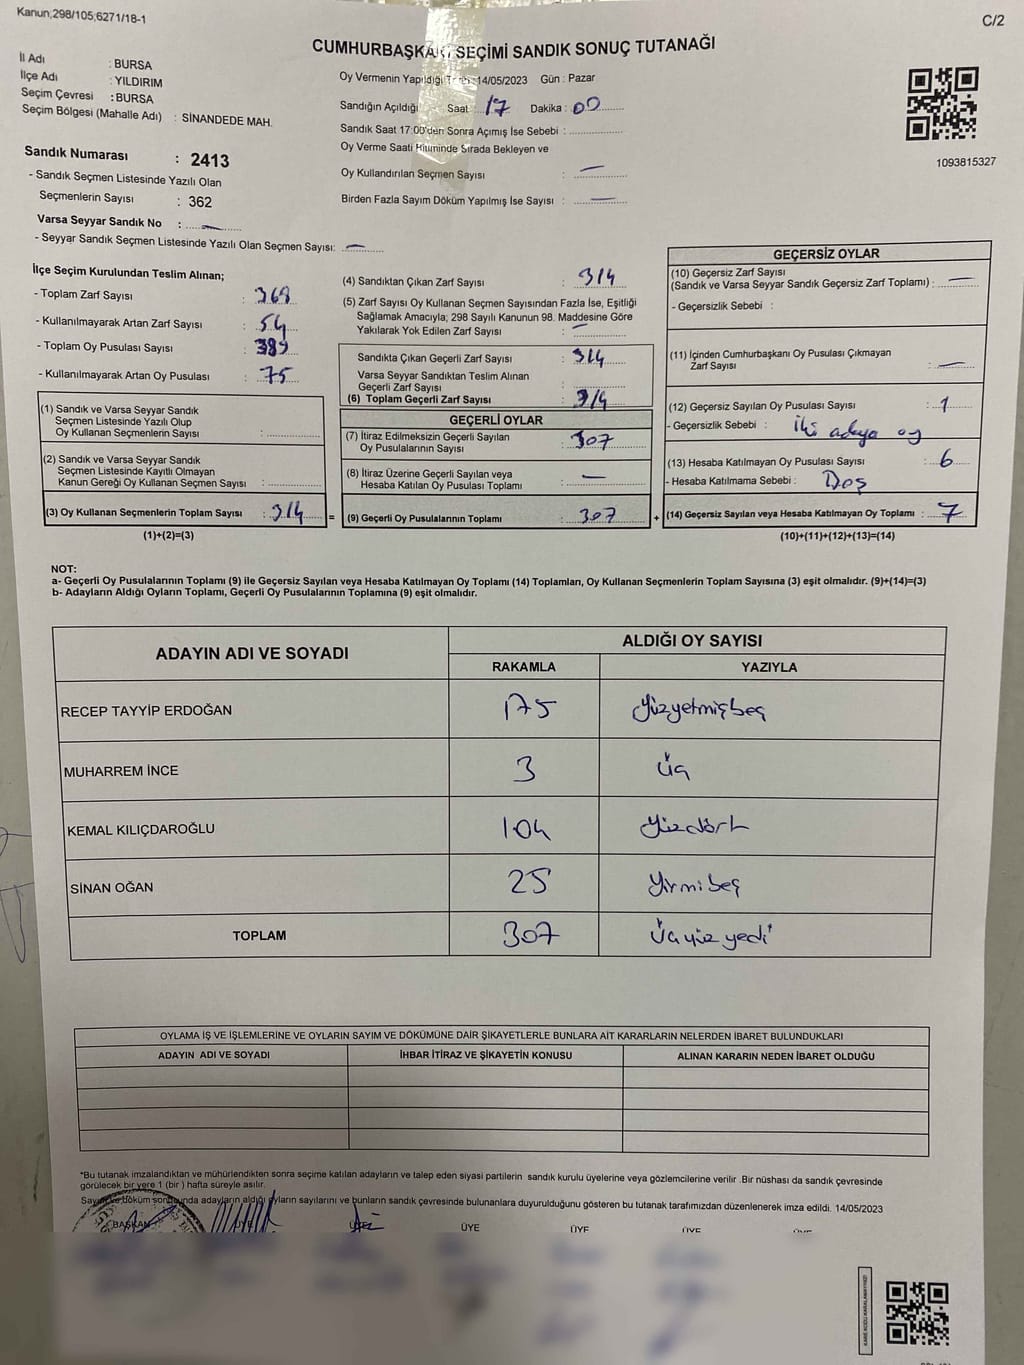 Kanun;298/105;6271/18-1
C/2
CUMHURBAŞKANI SEÇİMİ SANDIK SONUÇ TUTANAĞI
İl Adı : BURSA
İlçe Adı : YILDIRIM
Seçim Çevresi : BURSA
Seçim Bölgesi (Mahalle Adı) : SİNANDEDE MAH.
Sandık Numarası : 2413
- Sandık Seçmen Listesinde Yazılı Olan
Seçmenlerin Sayısı : 362
Varsa Seyyar Sandık No :
- Seyyar Sandık Seçmen Listesinde Yazılı Olan Seçmen Sayısı: —
Oy Vermenin Yapıldığı 14/05/2023 Gün : Pazar
Sandığın Açıldığı Saat : 17 Dakika : 00
Sandık Saat 17:00'den Sonra Açımış İse Sebebi :
Oy Verme Saati Bitiminde Sırada Bekleyen ve
Oy Kullandırılan Seçmen Sayısı : —
Birden Fazla Sayım Döküm Yapılmış İse Sayısı : —
1093815327
İlçe Seçim Kurulundan Teslim Alınan;
- Toplam Zarf Sayısı : 368
- Kullanılmayarak Artan Zarf Sayısı : 54
- Toplam Oy Pusulası Sayısı : 389
- Kullanılmayarak Artan Oy Pusulası : 75
(1) Sandık ve Varsa Seyyar Sandık
Seçmen Listesinde Yazılı Olup
Oy Kullanan Seçmenlerin Sayısı :
(2) Sandık ve Varsa Seyyar Sandık
Seçmen Listesinde Kayıtlı Olmayan
Kanun Gereği Oy Kullanan Seçmen Sayısı :
(3) Oy Kullanan Seçmenlerin Toplam Sayısı : 314 =
(1)+(2)=(3)
(4) Sandıktan Çıkan Zarf Sayısı : 314
(5) Zarf Sayısı Oy Kullanan Seçmen Sayısından Fazla İse, Eşitliği
Sağlamak Amacıyla; 298 Sayılı Kanunun 98. Maddesine Göre
Yakılarak Yok Edilen Zarf Sayısı : —
Sandıkta Çıkan Geçerli Zarf Sayısı : 314
Varsa Seyyar Sandıktan Teslim Alınan
Geçerli Zarf Sayısı :
(6) Toplam Geçerli Zarf Sayısı : 314
GEÇERLİ OYLAR
(7) İtiraz Edilmeksizin Geçerli Sayılan
Oy Pusulalarının Sayısı : 307
(8) İtiraz Üzerine Geçerli Sayılan veya
Hesaba Katılan Oy Pusulası Toplamı : —
(9) Geçerli Oy Pusulalarının Toplamı : 307 +
GEÇERSİZ OYLAR
(10) Geçersiz Zarf Sayısı
(Sandık ve Varsa Seyyar Sandık Geçersiz Zarf Toplamı) : —
- Geçersizlik Sebebi :
(11) İçinden Cumhurbaşkanı Oy Pusulası Çıkmayan
Zarf Sayısı : —
(12) Geçersiz Sayılan Oy Pusulası Sayısı : 1
- Geçersizlik Sebebi : İki adaya oy
(13) Hesaba Katılmayan Oy Pusulası Sayısı : 6
- Hesaba Katılmama Sebebi : Boş
(14) Geçersiz Sayılan veya Hesaba Katılmayan Oy Toplamı : 7
(10)+(11)+(12)+(13)=(14)
NOT:
a- Geçerli Oy Pusulalarının Toplamı (9) ile Geçersiz Sayılan veya Hesaba Katılmayan Oy Toplamı (14) Toplamları, Oy Kullanan Seçmenlerin Toplam Sayısına (3) eşit olmalıdır. (9)+(14)=(3)
b- Adayların Aldığı Oyların Toplamı, Geçerli Oy Pusulalarının Toplamına (9) eşit olmalıdır.
ADAYIN ADI VE SOYADI
ALDIĞI OY SAYISI
RAKAMLA YAZIYLA
RECEP TAYYİP ERDOĞAN 175 Yüzyetmişbeş
MUHARREM İNCE 3 üç
KEMAL KILIÇDAROĞLU 104 Yüzdört
SİNAN OĞAN 25 Yirmibeş
TOPLAM 307 üçyüz yedi
OYLAMA İŞ VE İŞLEMLERİNE VE OYLARIN SAYIM VE DÖKÜMÜNE DAİR ŞİKAYETLERLE BUNLARA AİT KARARLARIN NELERDEN İBARET BULUNDUKLARI
ADAYIN ADI VE SOYADI İHBAR İTİRAZ VE ŞİKAYETİN KONUSU ALINAN KARARIN NEDEN İBARET OLDUĞU
*Bu tutanak imzalandıktan ve mühürlendikten sonra seçime katılan adayların ve talep eden siyasi partilerin sandık kurulu üyelerine veya gözlemcilerine verilir .Bir nüshası da sandık çevresinde
görülecek bir yere 1 (bir ) hafta süreyle asılır.
Sayım ve döküm sonucunda adayların aldığı oyların sayılarını ve bunların sandık çevresinde bulunanlara duyurulduğunu gösteren bu tutanak tarafımızdan düzenlenerek imza edildi. 14/05/2023
BAŞKAN ÜYE ÜYE ÜYE ÜYE ÜYE